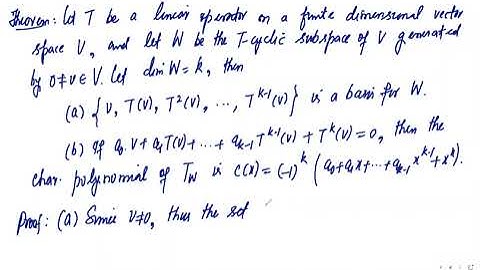 Theorem: Let T be a linear operator on a finite dimensional vector
space V, and let W be the T-cyclic subspace of V generated
by 0≠v∈V. Let dim W=k, then
(a) {v, T(v), T²(v), ..., T^{k-1}(v)} is a basis for W.
(b) If a₀.v+a₁T(v)+...+a_{k-1}T^{k-1}(v)+T^k(v)=0, then the
char. polynomial of T_W is c(x)=(-1)^k (a₀+a₁x+...+a_{k-1}x^{k-1}+x^k).
Proof: (a) Since v≠0, thus the set